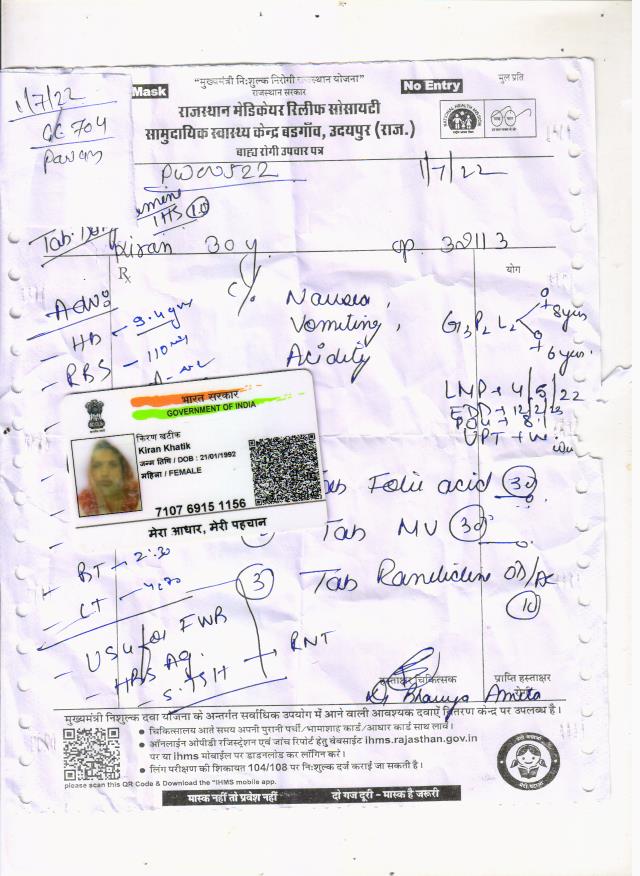 1/7/22
GC 704
Pavan
Mask
"मुख्यमंत्री नि:शुल्क निरोगी राजस्थान योजना"
राजस्थान सरकार
No Entry
मुल प्रति
राजस्थान मेडिकेयर रिलीफ सोसायटी
सामुदायिक स्वास्थ्य केन्द्र बडगाँव, उदयपुर (राज.)
बाह्य रोगी उपचार पत्र
NATIONAL HEALTH MISSION
1/7/22
Kiran 30 y. 32113
Rx
योग
c/o
Nausea,
Vomiting,
Acidity
G3P2L2
8yrs
6yrs.
HB - 9.4
RBS - 110
LMP → 4/5/22
EDD → 12/2/23
UPT +
भारत सरकार
GOVERNMENT OF INDIA
किरण खटीक
Kiran Khatik
जन्म तिथि / DOB : 21/01/1992
महिला / FEMALE
7107 6915 1156
मेरा आधार, मेरी पहचान
Tab Folic acid 30
Tab MV 30
Tab Ranitidine OD/AC
10
BT - 2:30
CT -
3
USG for FWB
HBS Ag.
S.TSH → RNT
हस्ताक्षर चिकित्सक
प्राप्ति हस्ताक्षर
मुख्यमंत्री निशुल्क दवा योजना के अन्तर्गत सर्वाधिक उपयोग में आने वाली आवश्यक दवाऐं वितरण केन्द्र पर उपलब्ध है।
• चिकित्सालय आते समय अपनी पुरानी पर्ची/भामाशाह कार्ड/आधार कार्ड साथ लावें।
• ऑनलाईन ओपीडी रजिस्ट्रेशन एवं जांच रिपोर्ट हेतु वेबसाईट ihms.rajasthan.gov.in
पर या ihms मोबाईल पर डाउनलोड कर लॉगिन करें।
• लिंग परीक्षण की शिकायत 104/108 पर नि:शुल्क दर्ज कराई जा सकती है।
please scan this QR Code & Download the "IHMS mobile app.
मास्क नहीं तो प्रवेश नहीं
दो गज दूरी - मास्क है जरूरी